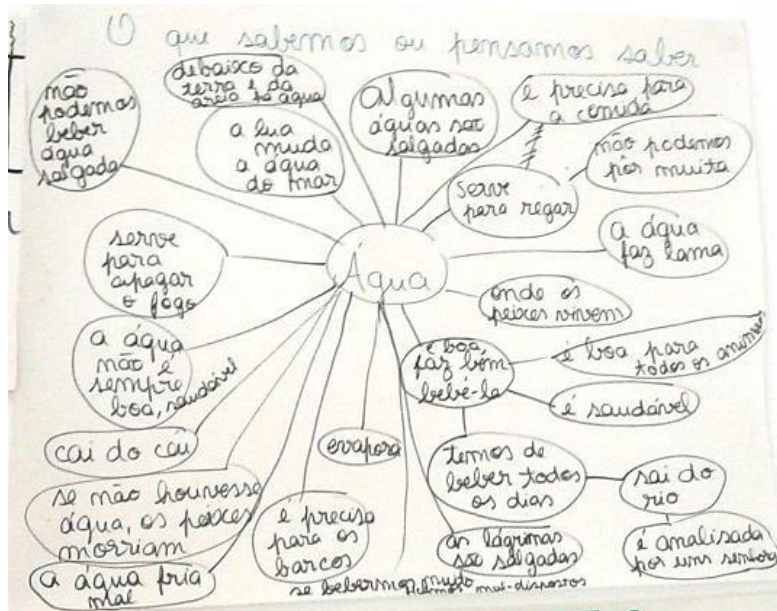 O que sabemos ou pensamos saber
não
podemos
beber
água
salgada
debaixo da
terra e da
areia há água
a lua
muda
a água
do mar
Algumas
águas são
salgadas
é precisa para
a comida
serve
para regar
não podemos
pôr muita
serve
para
apagar
o fogo
Água
a água
faz lama
onde os
peixes vivem
a água
não é
sempre
boa, saudável
é boa,
faz bem
bebê-la
é boa para
todos os animais
é saudável
cai do céu
evapora
temos de
beber todos
os dias
sai do
rio
é analisada
por um senhor
se não houvesse
água, os peixes
morriam
é precisa
para os
barcos
as lágrimas
são salgadas
a água fria
mal
se bebermos muito
ficamos mal-dispostos